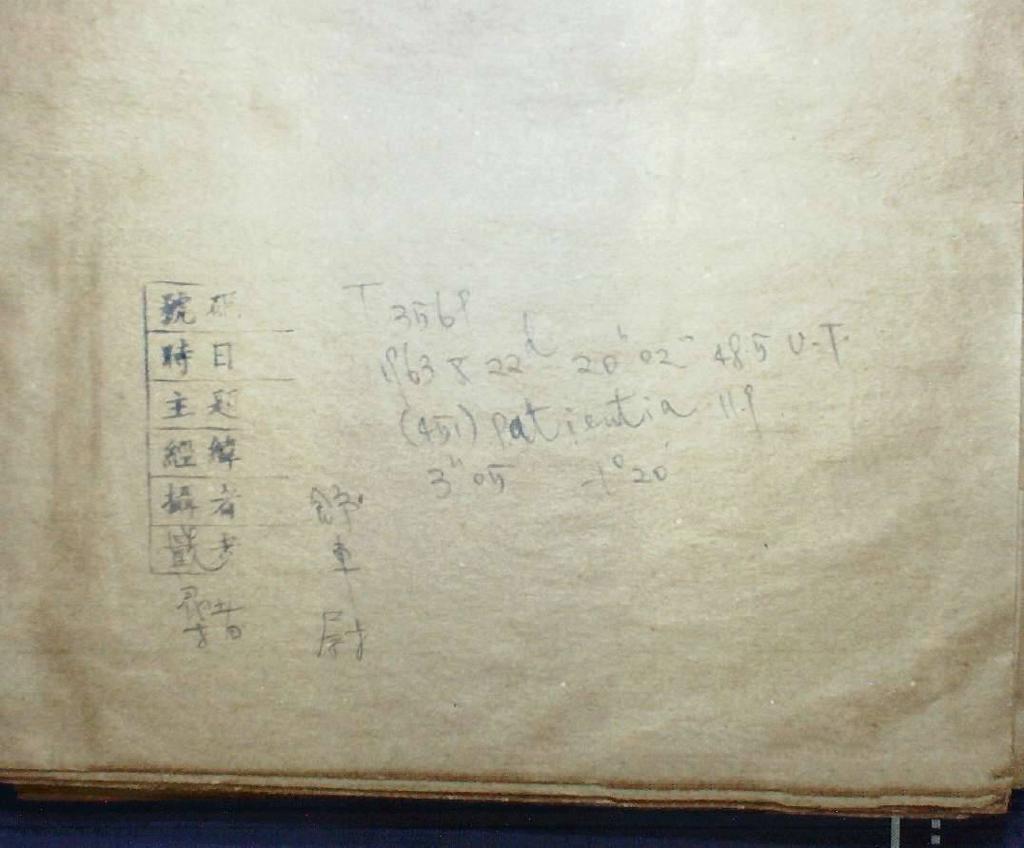 號碼 T 3569
時日 1963 X 22ᵈ 20ʰ 02ᵐ 48.5 U.T.
主題 (451) patientia 11.9
經緯 3ʰ 05 +°20'
攝者 舒
嚴者 車
尉